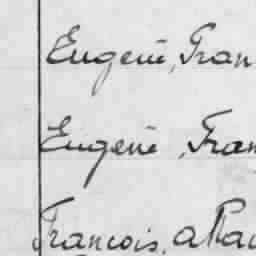 Eugène, Fran
Eugène, Fran
François, a Pa